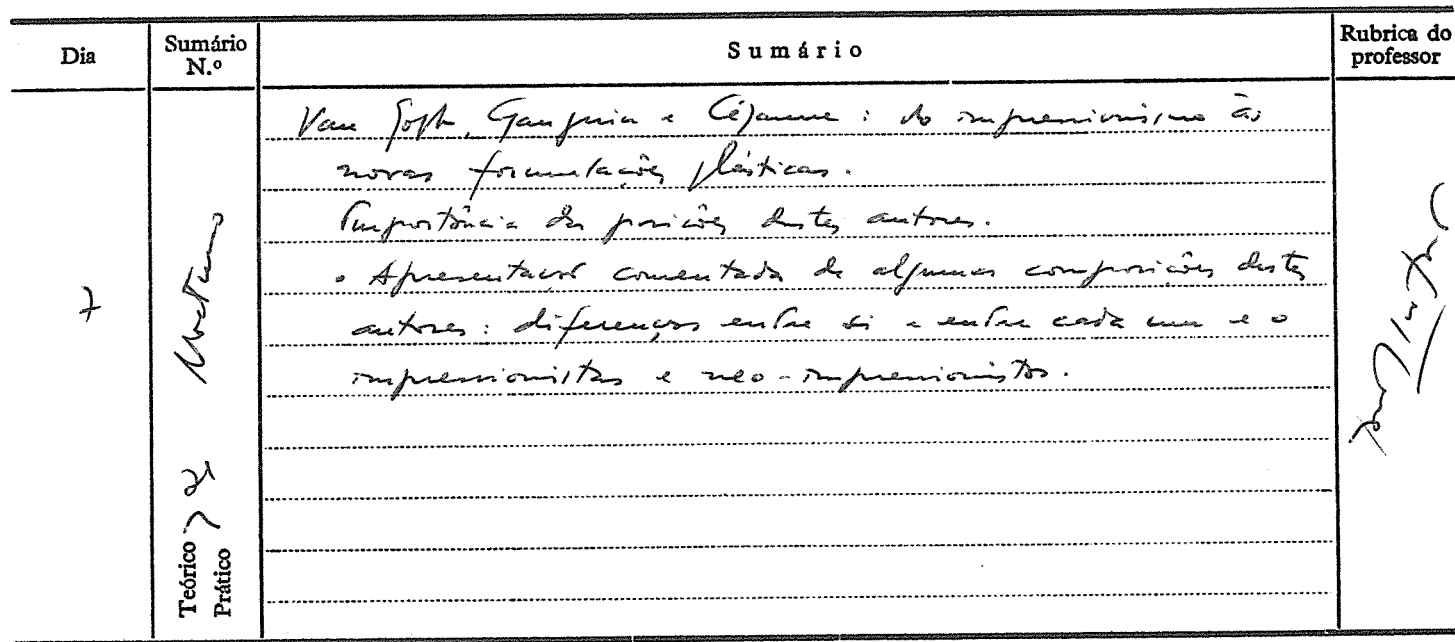 Dia
Sumário N.º
Sumário
Rubrica do professor
Van Gogh, Gauguin e Cézanne : do impressionismo às
novas formulações plásticas.
Importância das posições destes autores.
. Apresentação comentada de algumas composições destes
autores : diferenças entre si e entre cada um e o
impressionistas e neo-impressionistas.
7
Nocturno
Teórico
Prático